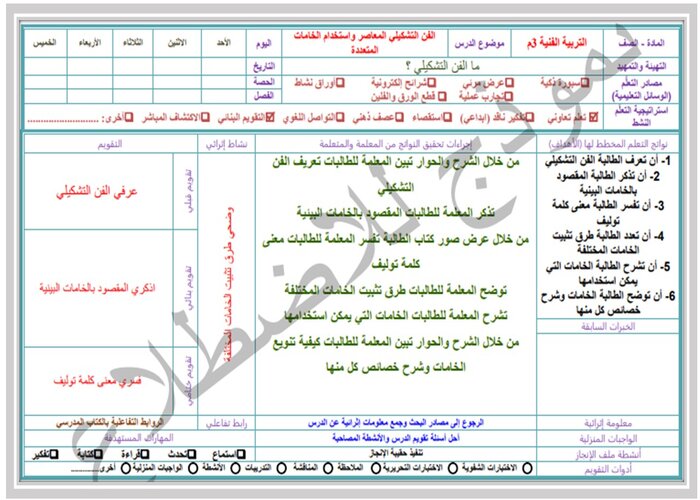 المادة - الصف
التربية الفنية 3م
موضوع الدرس
الفن التشكيلي المعاصر واستخدام الخامات
المتعددة
اليوم
الأحد
الاثنين
الثلاثاء
الأربعاء
الخميس
التهيئة والتمهيد
ما الفن التشكيلي ؟
التاريخ
مصادر التعلم
(الوسائل التعليمية)
سبورة ذكية
عرض مرئي
شرائح إلكترونية
أوراق نشاط
الحصة
تجارب عملية
قطع الورق والفلين
الفصل
استراتيجية التعلم
النشط
تعلم تعاوني
تفكير ناقد (ابداعي)
استقصاء
عصف ذهني
التواصل اللغوي
التقويم البنائي
الاكتشاف المباشر
أخرى: ............................
نواتج التعلم المخطط لها (الأهداف)
إجراءات تحقيق النواتج من المعلمة والمتعلمة
نشاط إثرائي
التقويم
1- أن تعرف الطالبة الفن التشكيلي
2- أن تذكر الطالبة المقصود
بالخامات البينية
3- أن تفسر الطالبة معنى كلمة
توليف
4- أن تعدد الطالبة طرق تثبيت
الخامات المختلفة
5- أن تشرح الطالبة الخامات التي
يمكن استخدامها
6- أن توضح الطالبة الخامات وشرح
خصائص كل منها
الخبرات السابقة
من خلال الشرح والحوار تبين المعلمة للطالبات تعريف الفن
التشكيلي
تذكر المعلمة للطالبات المقصود بالخامات البينية
من خلال عرض صور كتاب الطالبة تفسر المعلمة للطالبات معنى
كلمة توليف
توضح المعلمة للطالبات طرق تثبيت الخامات المختلفة
تشرح المعلمة للطالبات الخامات التي يمكن استخدامها
من خلال الشرح والحوار تبين المعلمة للطالبات كيفية تنويع
الخامات وشرح خصائص كل منها
وضحي طرق تثبيت الخامات المختلفة
تقويم قبلي
عرفي الفن التشكيلي
تقويم بنائي
اذكري المقصود بالخامات البينية
تقويم ختامي
فسري معنى كلمة توليف
معلومة إثرائية
الرجوع إلى مصادر البحث وجمع معلومات إثرائية عن الدرس
رابط تفاعلي
الروابط التفاعلية بالكتاب المدرسي
الواجبات المنزلية
أحل أسئلة تقويم الدرس والأنشطة المصاحبة
المهارات المستهدفة
أنشطة ملف الإنجاز
تنفيذ حقيبة الإنجاز
استماع
تحدث
قراءة
كتابة
تفكير
أدوات التقويم
الاختبارات الشفوية
الاختبارات التحريرية
الملاحظة
المناقشة
التدريبات
الأنشطة
الواجبات المنزلية
أخرى..........
نموذج للاطلاع